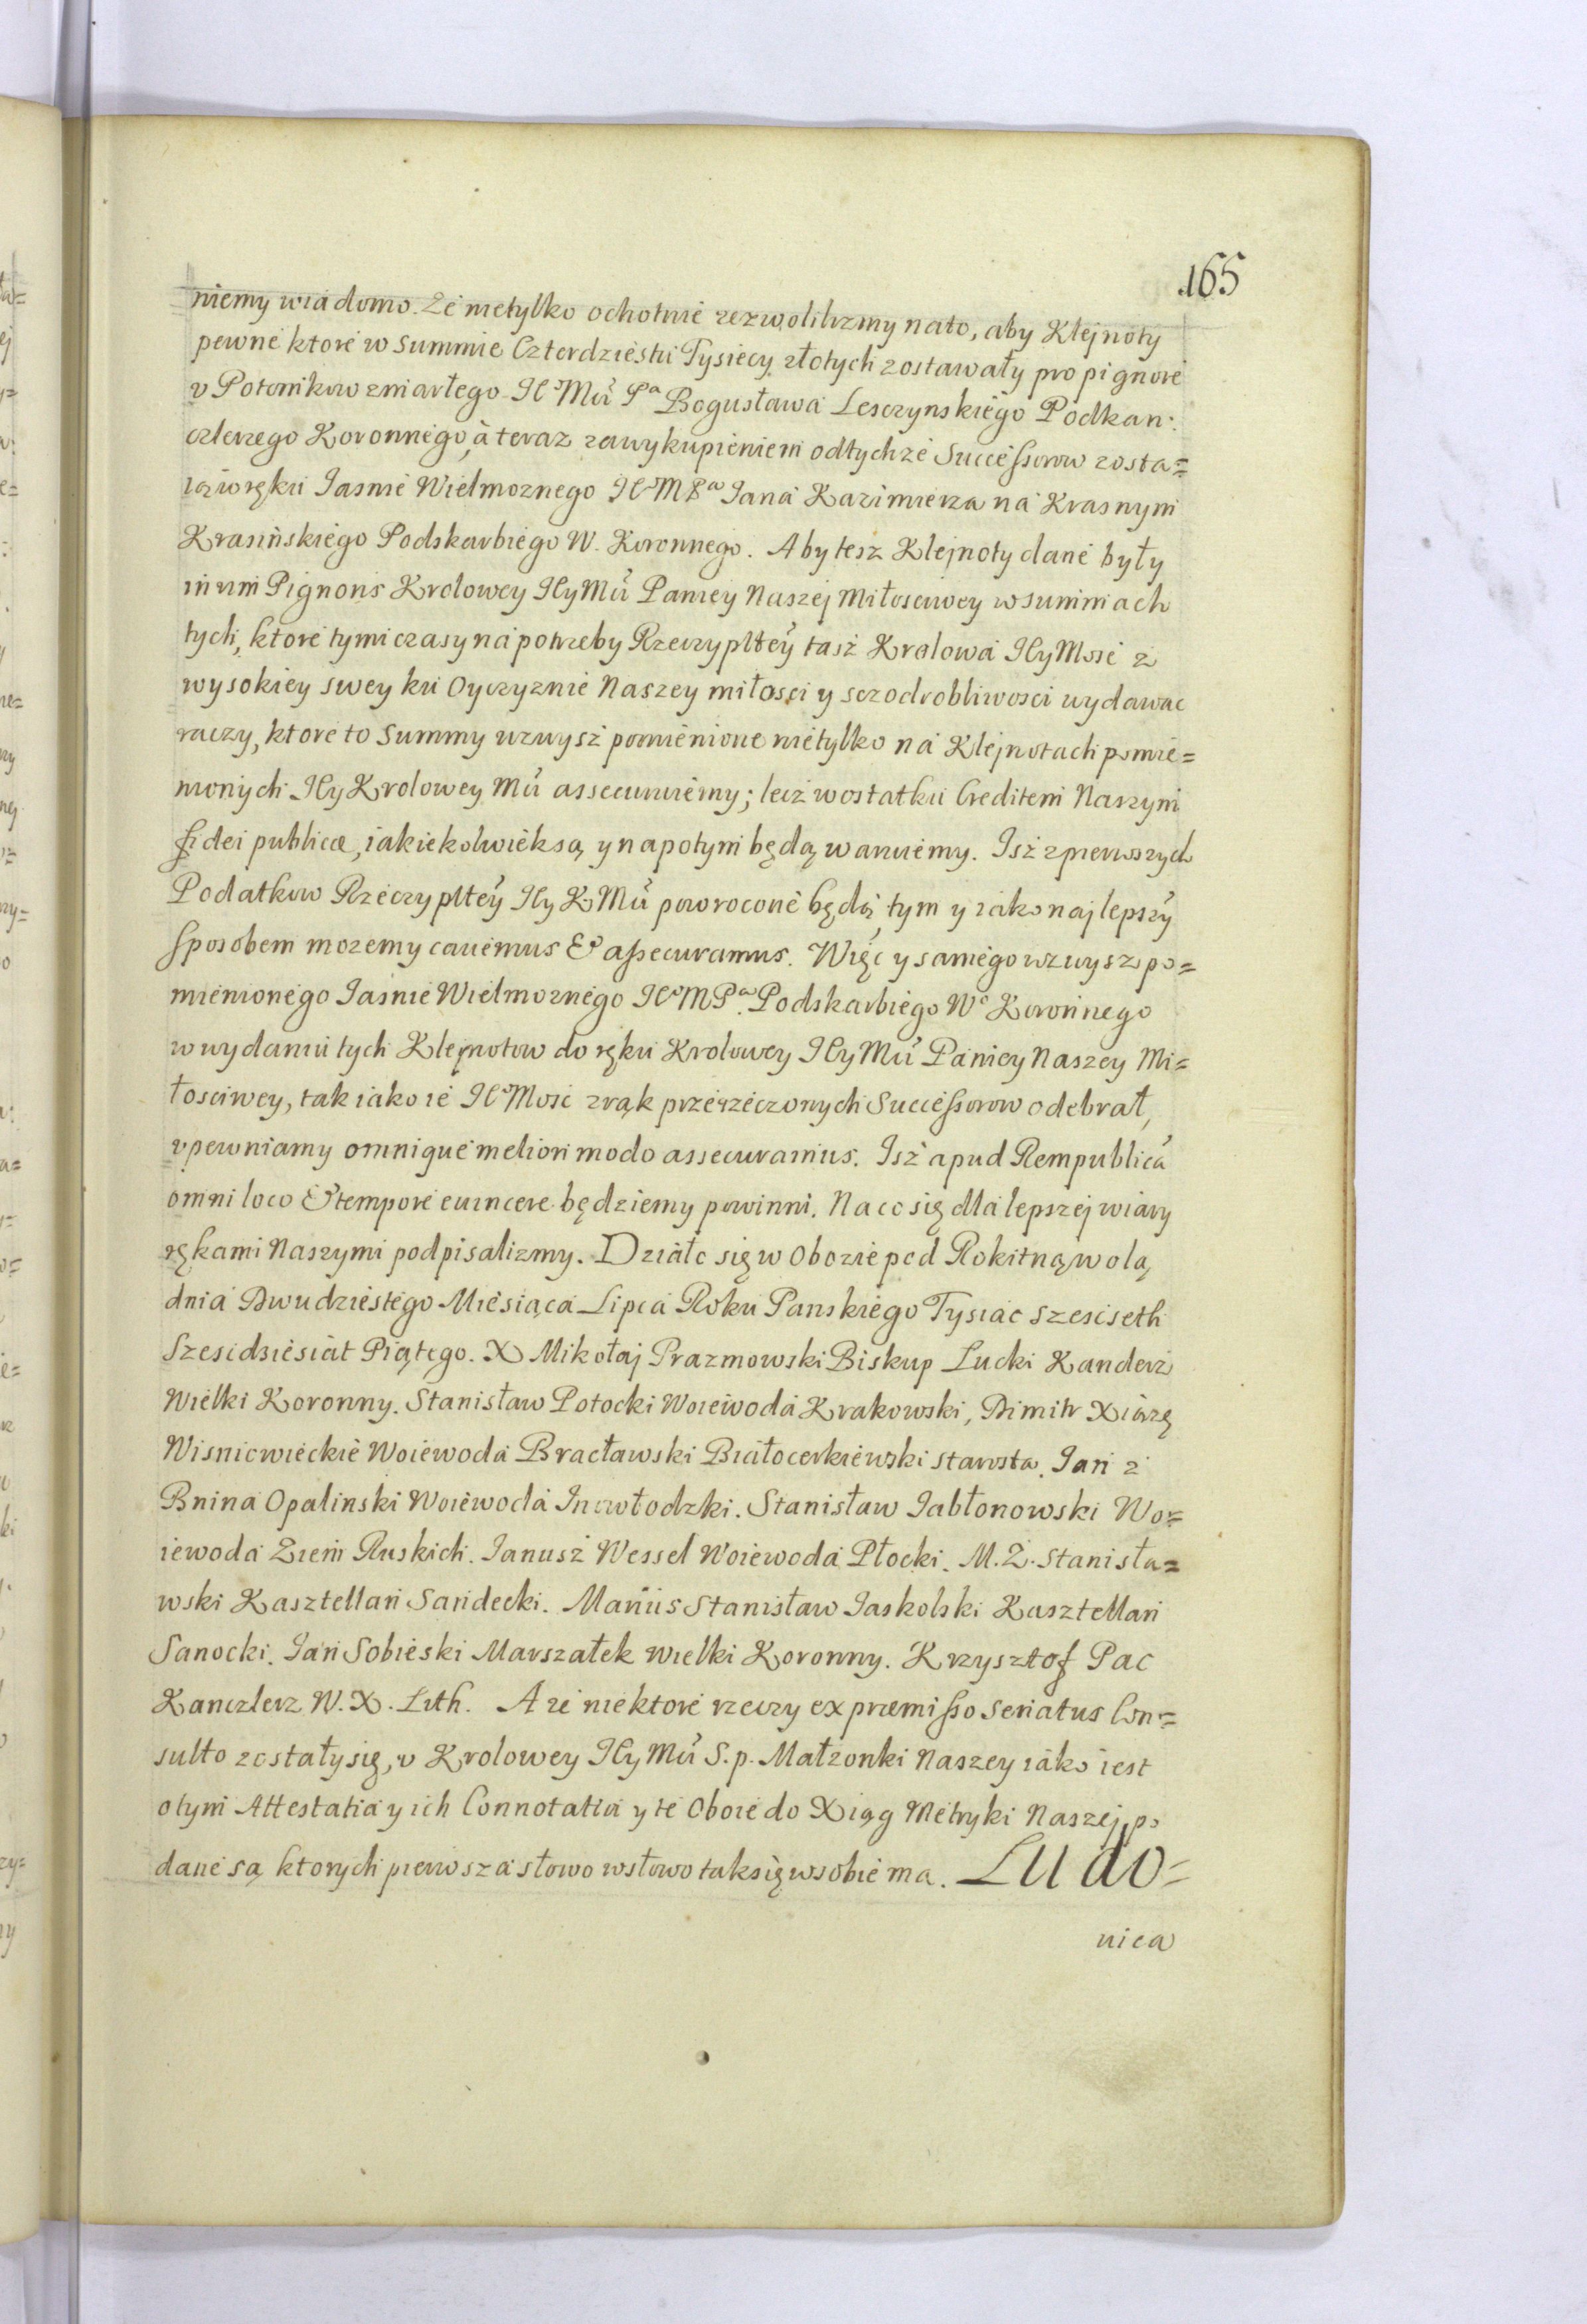 165
niemy wiadomo. Że nietylko ochotnie zezwolilizmy nato, aby Klejnoty
pewne ktore w Summie Czterdziestu Tysiecy złotych zostawały pro pignore
v Potomkow zmarłego IeoMći Pa Bogusława Lesczynskiego Podkan:
clerzego Koronnego, à teraz zawykupieniem odtychże Successorow zosta=
ią wręku Iasnie Wielmoznego IeoMPa Iana Kazimierza na Krasnym
Krasińskiego Podskarbiego W. Koronnego. Aby tesz Klejnoty dane były
in vim Pignoris Krolowey IeyMći Paniey Naszej Miłosciwey w summach
tych, ktore tymi czasy na potrzeby Rzeczypltey tasż Krolowa IeyMosc z
wysokiey swey ku Oyczyznie Naszey miłosci y sczodrobliwosci wydawac
raczy, ktore to Summy wzwysż pomienione nietylko na Klejnotach pomie=
nionych Iey Krolowey Mći assecuruiemy; lecż wostatku Creditem Naszym
fidei publicæ, iakiekolwiek są y napotym będą waruiemy. Isż z pierwszych
Podatkow Rzeczypltey Iey K Mći powrocone będą, tym y iako najlepszy
sposobem mozemy cauemus & assecuramus. Więc y samego wzwysz po=
mienionego Iasnie Wielmoznego IeoMPa. Podskarbiego Wo Koronnego
w wydaniu tych Klejnotow do ręku Krolowey IeyMći Paniey Naszey Mi=
łosciwey, tak iako ie IeoMosc z rąk przerzeczonych Successorow odebrał,
vpewniamy omnique meliori modo assecuramus. Isż apud Rempublicã
omni loco & tempore euincere będziemy powinni. Na co się dla lepszej wiary
rękami Naszymi podpisalizmy. Działo się w Obozie pod Rokitną wolą
dnia Dwudziestego Miesiąca Lipca Roku Panskiego Tysiac Szescseth
Szescdziesiat Piątego. X Mikołaj Prazmowski Biskup Lucki Kanclerz
Wielki Koronny. Stanisław Potocki Woiewoda Krakowski, Dimitr Xiąze
Wisniowieckie Woiewoda Bracławski Białocerkiewski starosta. Ian z
Bnina Opalinski Woiewoda Inowłodzki. Stanisław Iabłonowski Wo=
iewoda Ziem Ruskich. Ianusż Wessel Woiewoda Płocki. M. Z. Stanisła=
wski Kasztellan Sandecki. Marius Stanisław Iaskolski Kasztellan
Sanocki. Ian Sobieski Marszałek Wielki Koronny. Krzysztof Pac
Kanclerz W. X. Lith. A że niektore rzeczy ex præmisso Senatus Con=
sulto zostały się, v Krolowey IeyMći S. p. Małzonki Naszey iako iest
otym Attestatia y ich Connotatia y te Oboie do Xiąg Metryki Naszej po
dane są, ktorych pierwsza słowo wsłowo tak się wsobie ma. Ludo=
uica